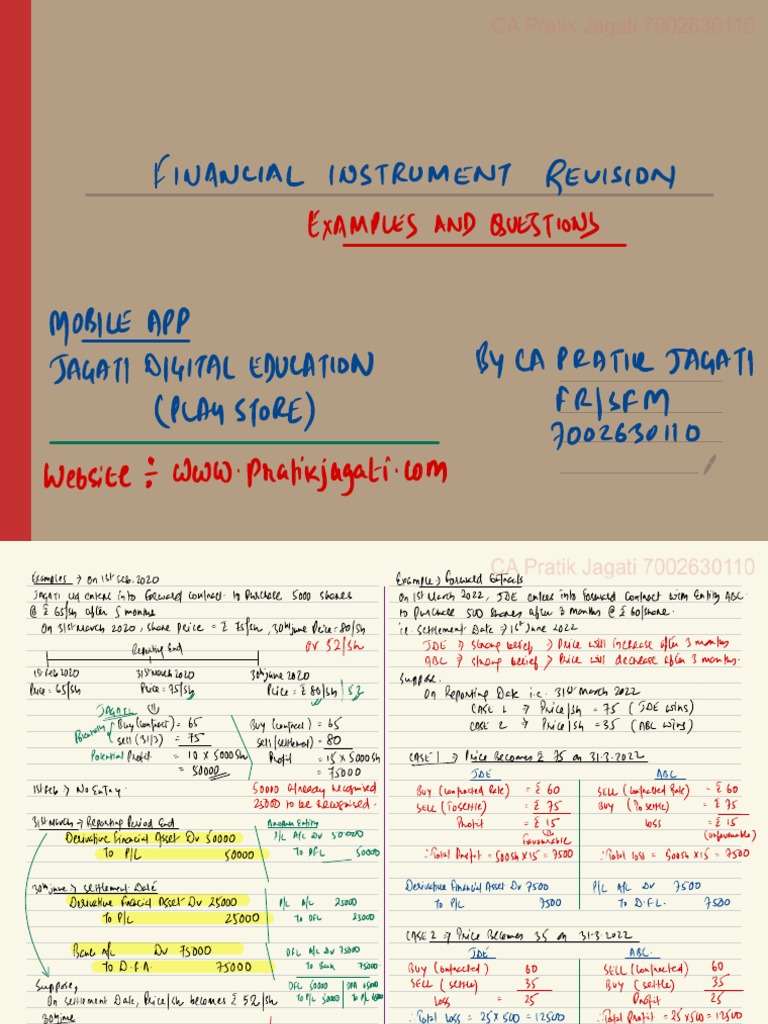 CA Pratik Jagati 7002630110
FINANCIAL INSTRUMENT REVISION
EXAMPLES AND QUESTIONS
MOBILE APP
JAGATI DIGITAL EDUCATION
(PLAY STORE)
BY CA PRATIK JAGATI
FR/SFM
7002630110
Website ÷ www.Pratikjagati.com
CA Pratik Jagati 7002630110
Examples → on 1st Feb, 2020
JAGATI Ltd enters into Forward Contract to purchase 5000 shares
@ ₹ 65/sh after 5 months
On 31st March 2020, share Price = ₹ 75/sh, 30th June Price = 80/sh
or 52/sh
Reporting End
1st Feb 2020 31st March 2020 30th June 2020
Price = 65/sh Price = 75/sh Price = ₹ 80/sh | 52
JAGATI
Potentially
Buy (contract) = 65
Sell (31/3) = 75
Potential Profit = 10 x 5000sh
= 50000
Buy (contract) = 65
Sell (settlement) = 80
Profit = 15 x 5000sh
= 75000
1st Feb → No Entry.
50000 already recognised
25000 to be recognised.
31st March → Reporting Period End
Derivative Financial Asset Dr 50000
To P/L 50000
Another Entity
P/L A/c Dr 50000
To DFL 50000
30th June → Settlement Date
Derivative Financial Asset Dr 25000
To P/L 25000
P/L A/c 25000
To DFL 25000
Bank a/c Dr 75000
To D.F.A. 75000
DFL A/c Dr 75000
To Bank 75000
Suppose,
On settlement Date, Price/sh becomes ₹ 52/sh
30th June
DFL 50000
To P/L 50000
Example → Forward Contracts
On 1st March 2022, JDE enters into Forward Contract with Entity ABC
to Purchase 500 shares after 3 months @ ₹ 60/share.
i.e. Settlement Date → 1st June 2022
JDE → strong belief → Price will increase after 3 months
ABC → strong belief → Price will decrease after 3 months.
Suppose.
On Reporting Date i.e. 31st March 2022
CASE 1 → Price/sh = 75 (JDE wins)
CASE 2 → Price/sh = 35 (ABC wins)
CASE 1 → Price Becomes ₹ 75 on 31.3.2022
JDE
Buy (contracted Rate) = ₹ 60
SELL (To settle) = ₹ 75
Profit = ₹ 15
Favourable
∴ Total Profit = 500sh x 15 = 7500
ABC
SELL (contracted Rate) = ₹ 60
Buy (To settle) = ₹ 75
loss = ₹ 15
(Unfavourable)
∴ Total loss = 500sh x 15 = 7500
Derivative Financial Asset Dr 7500
To P/L 7500
P/L A/c Dr 7500
To D.F.L. 7500
CASE 2 → Price Becomes 35 on 31.3.2022
JDE
Buy (contracted) 60
SELL (settle) 35
loss = 25
∴ Total loss = 25 x 500 = 12500
ABC.
SELL (contracted) 60
Buy (settle) 35
Profit 25
∴ Total Profit = 25 x 500 = 12500